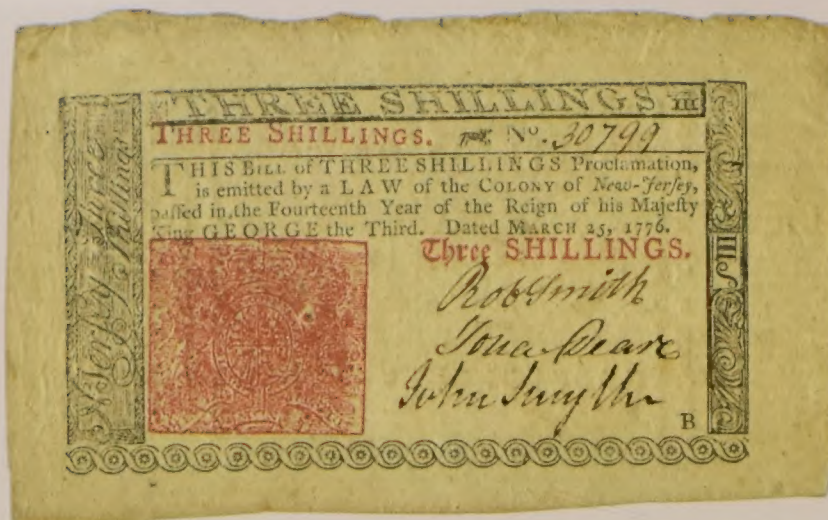 THREE SHILLINGS III
THREE SHILLINGS. No. 30799
THIS BILL of THREE SHILLINGS Proclamation,
is emitted by a LAW of the COLONY of New-Jerſey,
paſſed in the Fourteenth Year of the Reign of his Majeſty
King GEORGE the Third. Dated MARCH 25, 1776.
Three SHILLINGS.
Rob Smith
Jona Deare
John Smyth
B
N Jerſey Three
Shillings
III ſ